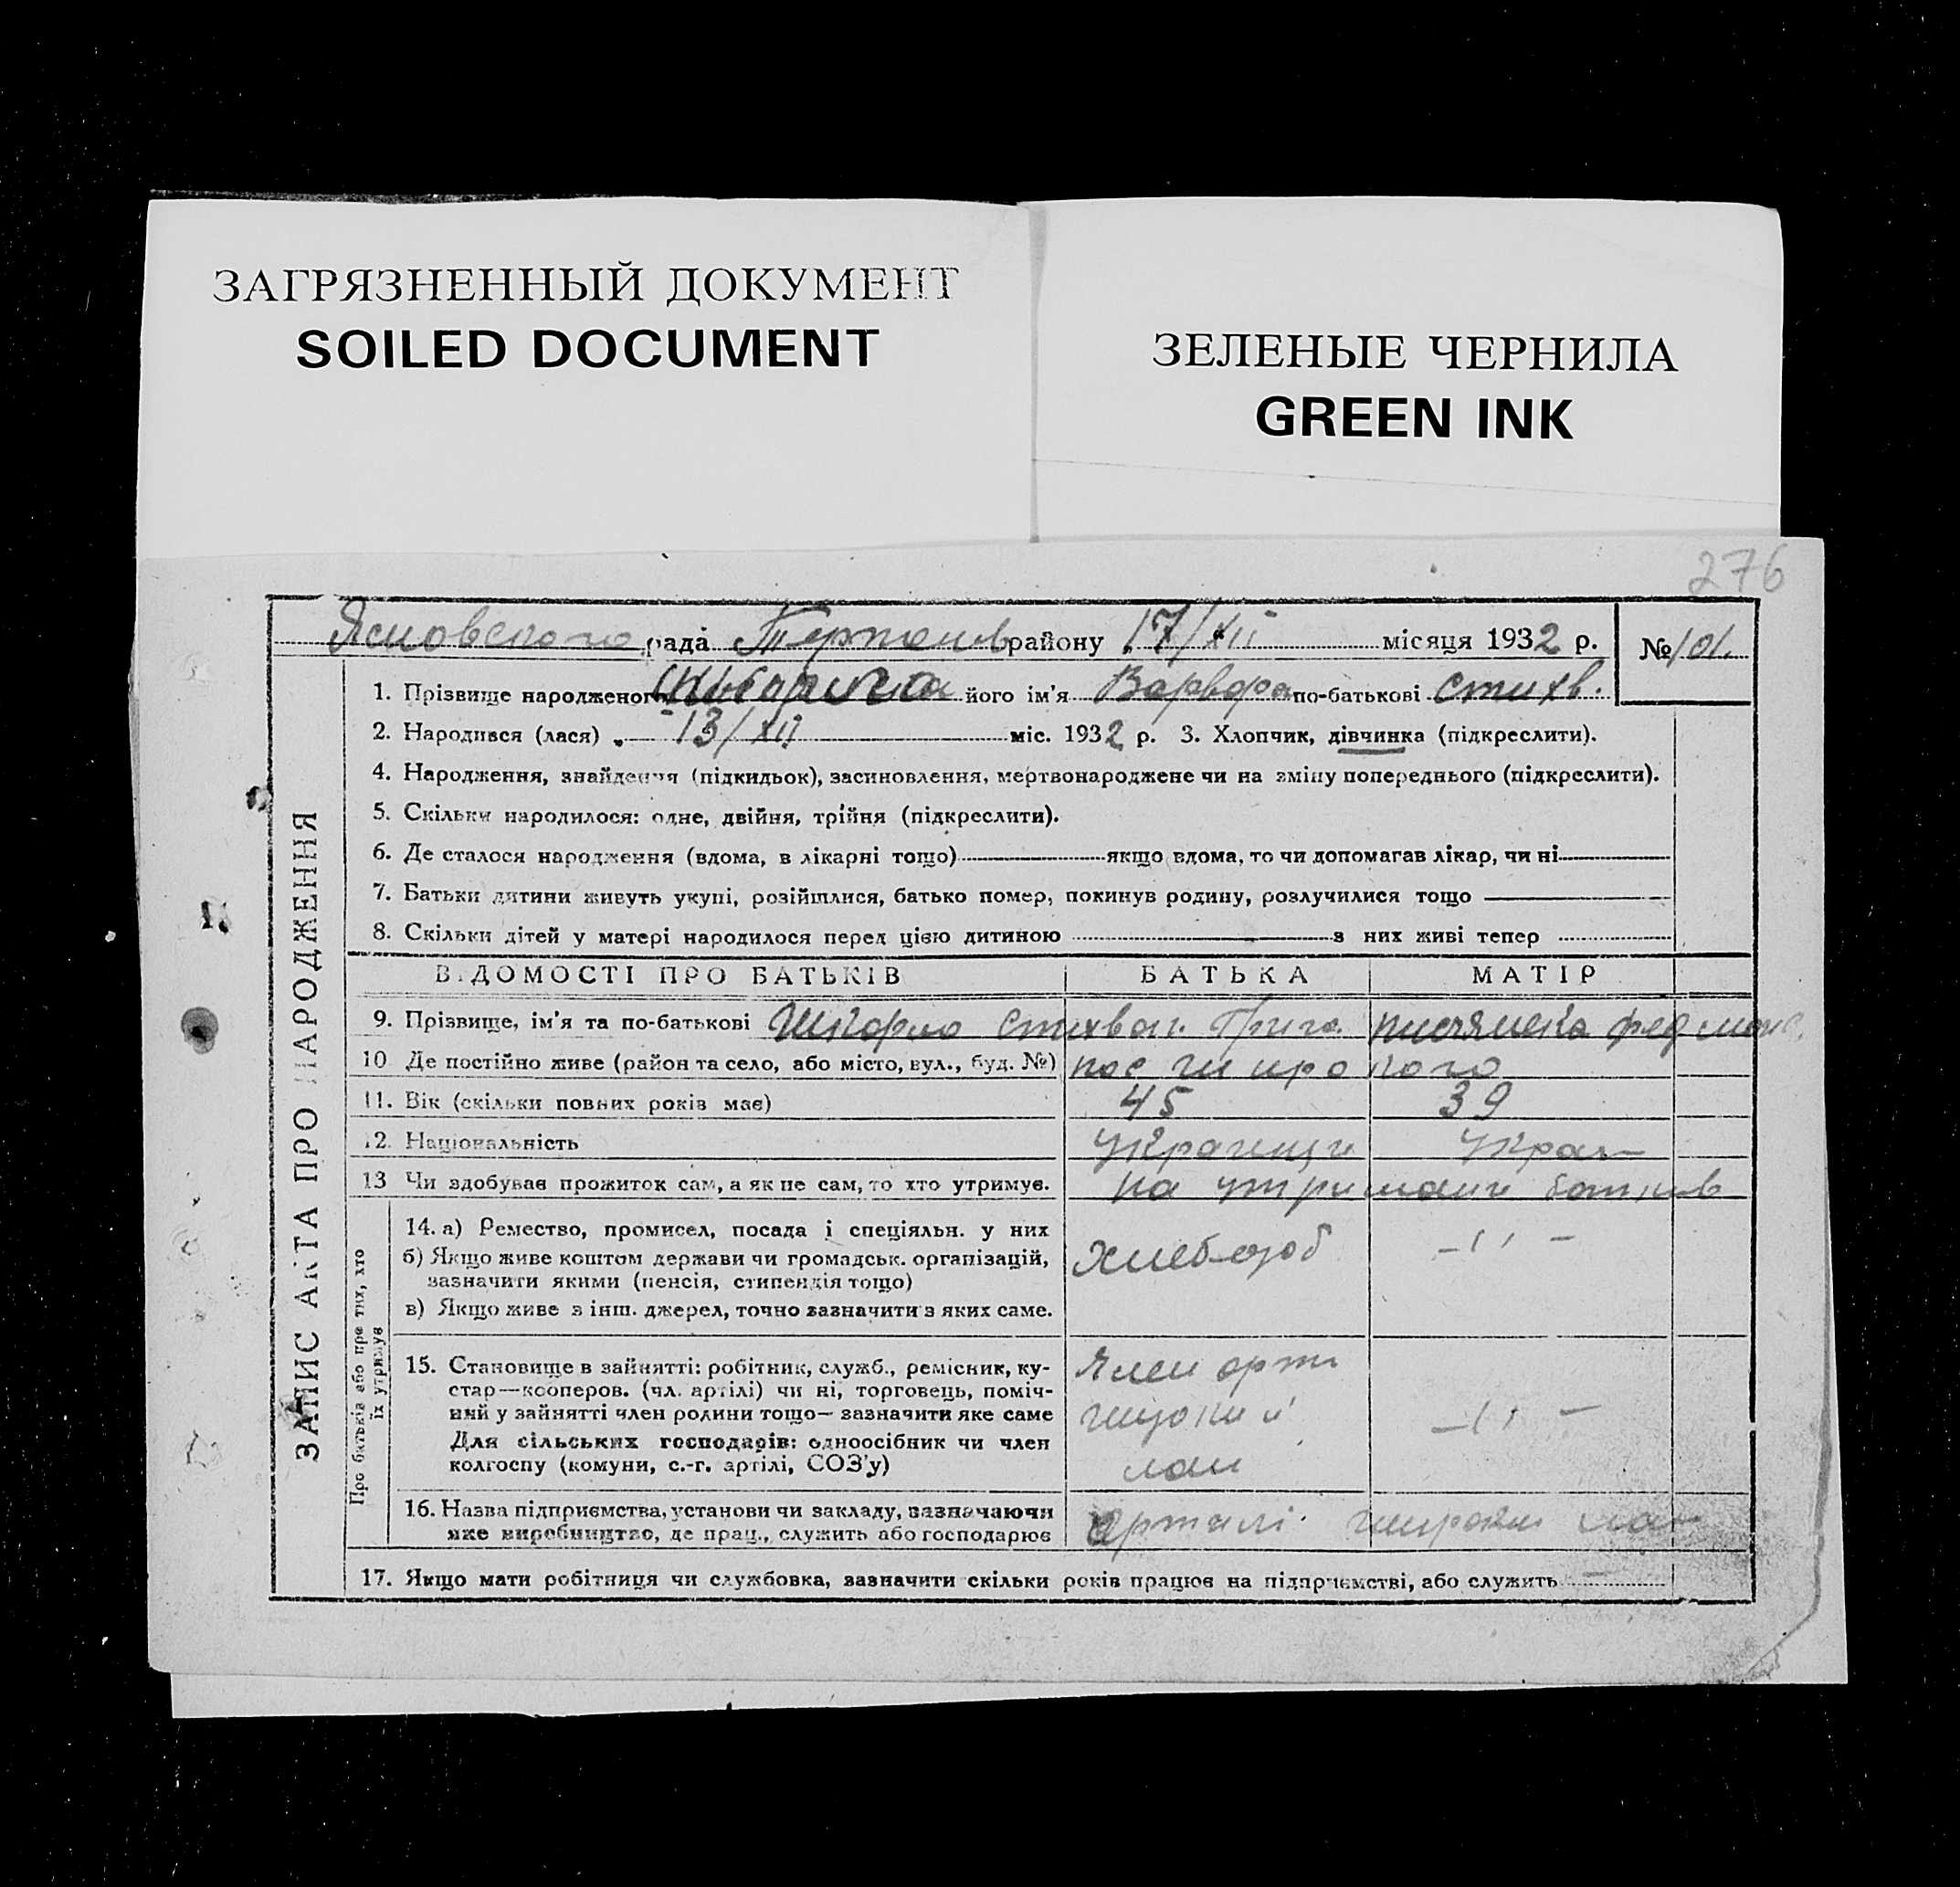 ЗАГРЯЗНЕННЫЙ ДОКУМЕНТ
SOILED DOCUMENT
ЗЕЛЕНЫЕ ЧЕРНИЛА
GREEN INK
276
рада району 17/XII місяця 1932 р. № 101.
1. Прізвище народженого його ім'я Варвара по-батькові Стихв.
2. Народився (лася) „ 13/XII міс. 1932 р. 3. Хлопчик, дівчинка (підкреслити).
4. Народження, знайдення (підкидьок), засиновлення, мертвонароджене чи на зміну попереднього (підкреслити).
5. Скільки народилося: одне, двійня, трійня (підкреслити).
6. Де сталося народження (вдома, в лікарні тощо) якщо вдома, то чи допомагав лікар, чи ні
7. Батьки дитини живуть укупі, розійшлися, батько помер, покинув родину, розлучилися тощо
8. Скільки дітей у матері народилося перед цією дитиною з них живі тепер
ЗАПИС АКТА ПРО НАРОДЖЕННЯ
ВІДОМОСТІ ПРО БАТЬКІВ БАТЬКА МАТІР
9. Прізвище, ім'я та по-батькові
10 Де постійно живе (район та село, або місто, вул., буд. №)
11. Вік (скільки повних років має) 45 39
12. Національність Украинци Украи
13 Чи здобуває прожиток сам, а як не сам, то хто утримує. на утримани батьків
Про батьків або про тих, хто
їх утримує
14. а) Ремество, промисел, посада і спеціяльн. у них
б) Якщо живе коштом держави чи громадськ. організацій,
зазначити якими (пенсія, стипендія тощо)
в) Якщо живе з інш. джерел, точно зазначити з яких саме.
Хлебороб –〃–
15. Становище в зайнятті: робітник, служб., ремісник, ку-
стар—кооперов. (чл. артілі) чи ні, торговець, поміч-
ний у зайнятті член родини тощо— зазначити яке саме
Для сільських господарів: одноосібник чи член
колгоспу (комуни, с.-г. артілі, СОЗ'у)
лан –〃–
16. Назва підприємства, установи чи закладу, зазначаючи
яке виробництво, де прац., служить або господарює
Артилі
17. Якщо мати робітниця чи службовка, зазначити скільки років працює на підприємстві, або служить